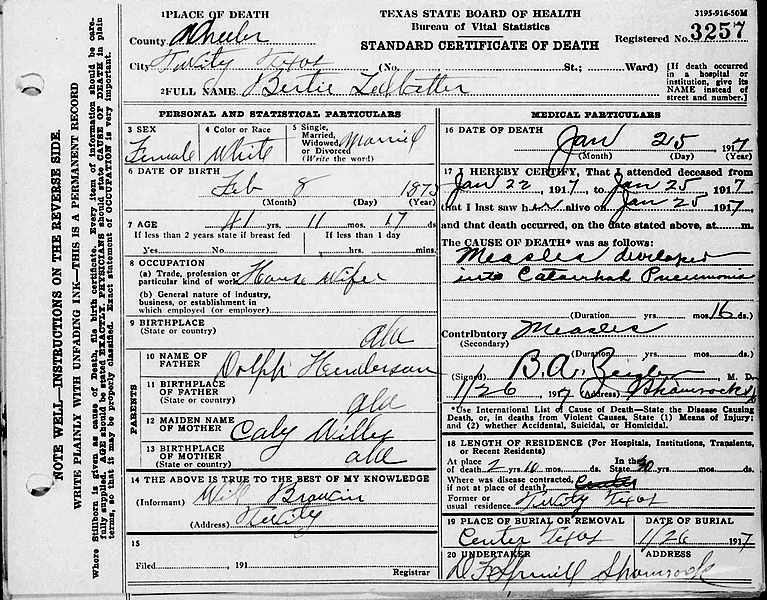 1 PLACE OF DEATH
TEXAS STATE BOARD OF HEALTH
3195-916-50M
County Wheeler
Bureau of Vital Statistics
Registered No. 3257
STANDARD CERTIFICATE OF DEATH
City Twity Texas (No. St.; Ward)
[If death occurred in a hospital or institution, give its NAME instead of street and number.]
2 FULL NAME Bertie Ledbetter
PERSONAL AND STATISTICAL PARTICULARS
3 SEX Female
4 Color or Race White
5 Single, Married, Widowed or Divorced (Write the word) Married
6 DATE OF BIRTH
Feb 8 1875
(Month) (Day) (Year)
7 AGE 41 yrs. 11 mos. 17 ds.
If less than 2 years state if breast fed If less than 1 day
Yes No hrs. mins.
8 OCCUPATION
(a) Trade, profession or particular kind of work House Wife
(b) General nature of industry, business, or establishment in which employed (or employer)
9 BIRTHPLACE
(State or country) ala
PARENTS
10 NAME OF FATHER Dolph Henderson
11 BIRTHPLACE OF FATHER (State or country) ala
12 MAIDEN NAME OF MOTHER Caly
13 BIRTHPLACE OF MOTHER (State or country) ala
14 THE ABOVE IS TRUE TO THE BEST OF MY KNOWLEDGE
(Informant) Will
(Address) Twity
15
Filed , 191
Registrar
MEDICAL PARTICULARS
16 DATE OF DEATH
Jan 25 1917
(Month) (Day) (Year)
17 I HEREBY CERTIFY, That I attended deceased from
Jan 22 1917, to Jan 25 1917
that I last saw her alive on Jan 25 1917,
and that death occurred, on the date stated above, at m.
The CAUSE OF DEATH* was as follows:
Measles developed
into Catarrhal Pneumonia
(Duration yrs. mos. 16 ds.
Contributory Measles
(Secondary)
(Duration yrs. mos. ds.
(Signed) B. A. Zeigler M. D.
1/26 1917 (Address) Shamrock
*Use International List of Cause of Death—State the Disease Causing Death, or, in deaths from Violent Causes, State (1) Means of Injury; and (2) whether Accidental, Suicidal, or Homicidal.
18 LENGTH OF RESIDENCE (For Hospitals, Institutions, Transients, or Recent Residents)
At place of death 2 yrs. 10 mos. ds. In the State 40 yrs. mos. ds.
Where was disease contracted, if not at place of death? Center
Former or usual residence Twity Texas
19 PLACE OF BURIAL OR REMOVAL
Center Texas
DATE OF BURIAL
1/26 1917
20 UNDERTAKER ADDRESS
Shamrock
NOTE WELL—INSTRUCTIONS ON THE REVERSE SIDE.
WRITE PLAINLY WITH UNFADING INK—THIS IS A PERMANENT RECORD
Where Stillborn is given as cause of Death, file birth certificate. Every item of information should be care-
fully supplied. AGE should be stated EXACTLY. PHYSICIANS should state CAUSE OF DEATH in plain
terms, so that it may be properly classified. Exact statement of OCCUPATION is very important.